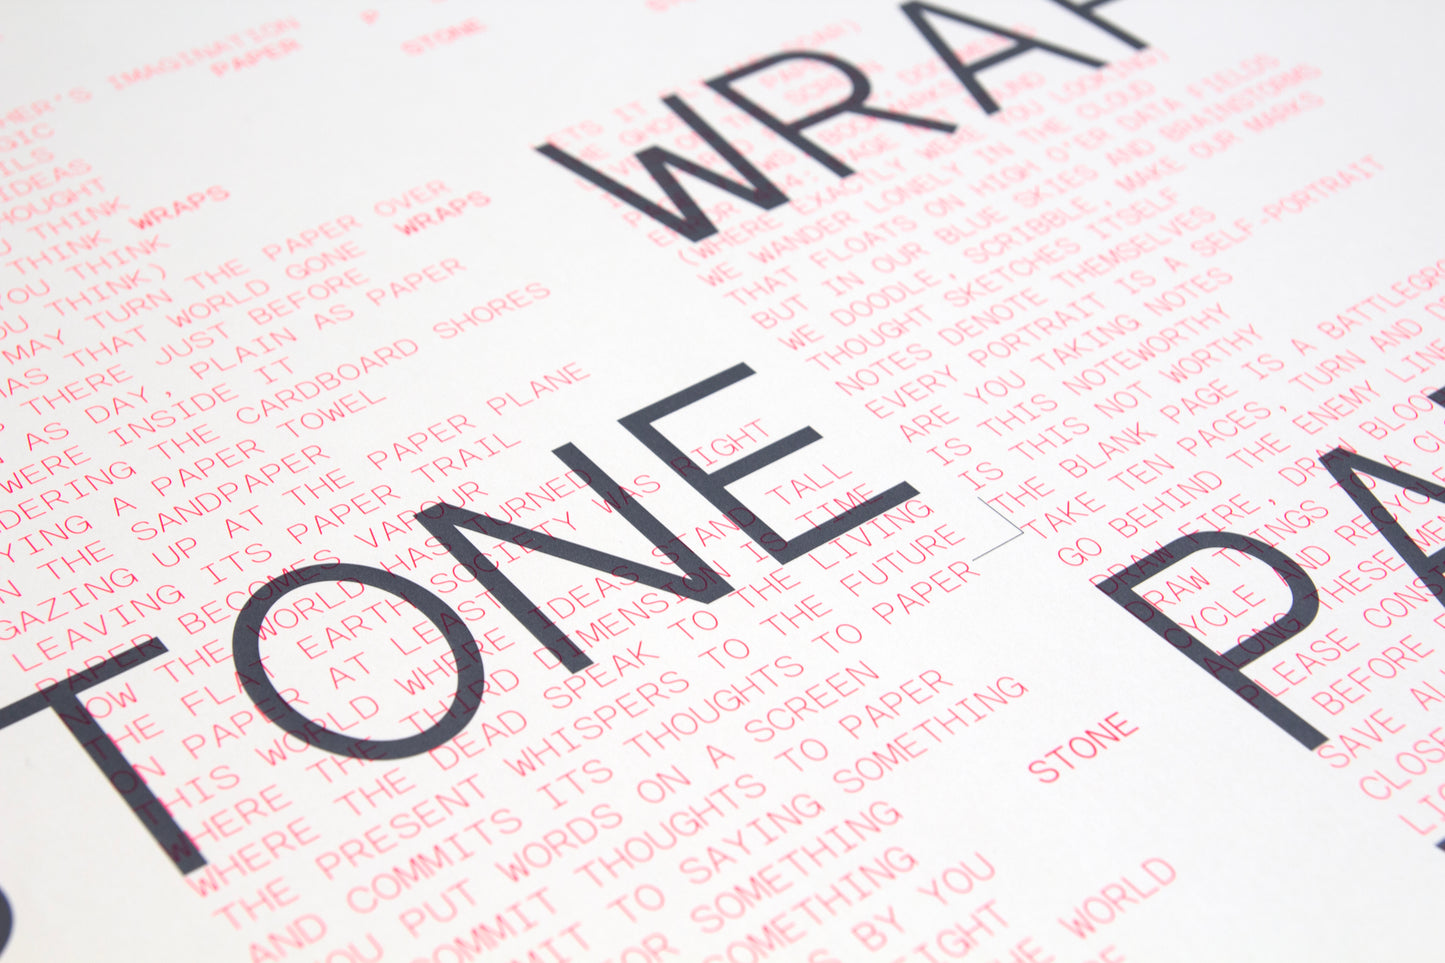 HER'S IMAGINATION
PAPER
STONE
GIC
ILS
IDEAS
THOUGHT
U THINK
THINK WRAPS
YOU THINK
OU THINK)
MAY TURN THE PAPER OVER
HAS THAT WORLD GONE WRAPS
THERE JUST BEFORE
AS DAY, PLAIN AS PAPER
WERE INSIDE IT
DERING THE CARDBOARD SHORES
YING A PAPER TOWEL
N THE SANDPAPER
GAZING UP AT THE PAPER PLANE
LEAVING ITS PAPER TRAIL
PAPER BECOMES VAPOUR
NOW THE WORLD HAS TURNED
THE FLAT EARTH SOCIETY WAS RIGHT
ON PAPER AT LEAST
THIS WORLD WHERE IDEAS STAND TALL
WHERE THE THIRD DIMENSION IS TIME
WHERE THE DEAD SPEAK TO THE LIVING
THE PRESENT WHISPERS TO THE FUTURE
AND COMMITS ITS THOUGHTS TO PAPER
YOU PUT WORDS ON A SCREEN
COMMIT THOUGHTS TO PAPER
MIT TO SAYING SOMETHING
OR SOMETHING
SOMETHING
S BY YOU
IGHT
THE WORLD
WRAP
TONE
PA
STONE
(WHERE EXACTLY WERE YOU LOOKING)
WE WANDER LONELY IN THE CLOUD
THAT FLOATS ON HIGH O'ER DATA FIELDS
BUT IN OUR BLUE SKIES AND BRAINSTORMS
WE DOODLE, SCRIBBLE, MAKE OUR MARKS
THOUGHT SKETCHES ITSELF
NOTES DENOTE THEMSELVES
EVERY PORTRAIT IS A SELF-PORTRAIT
ARE YOU TAKING NOTES
IS THIS NOTEWORTHY
IS THIS NOT WORTHY
THE BLANK PAGE IS A BATTLEGRO
TAKE TEN PACES, TURN AND D
GO BEHIND THE ENEMY LINE
DRAW FIRE, DRAW BLOOD
DRAW THINGS TO A CL
CYCLE AND RECYCLE
ALONG THESE MEM
PLEASE CONS
BEFORE
SAVE AL
CLOSE